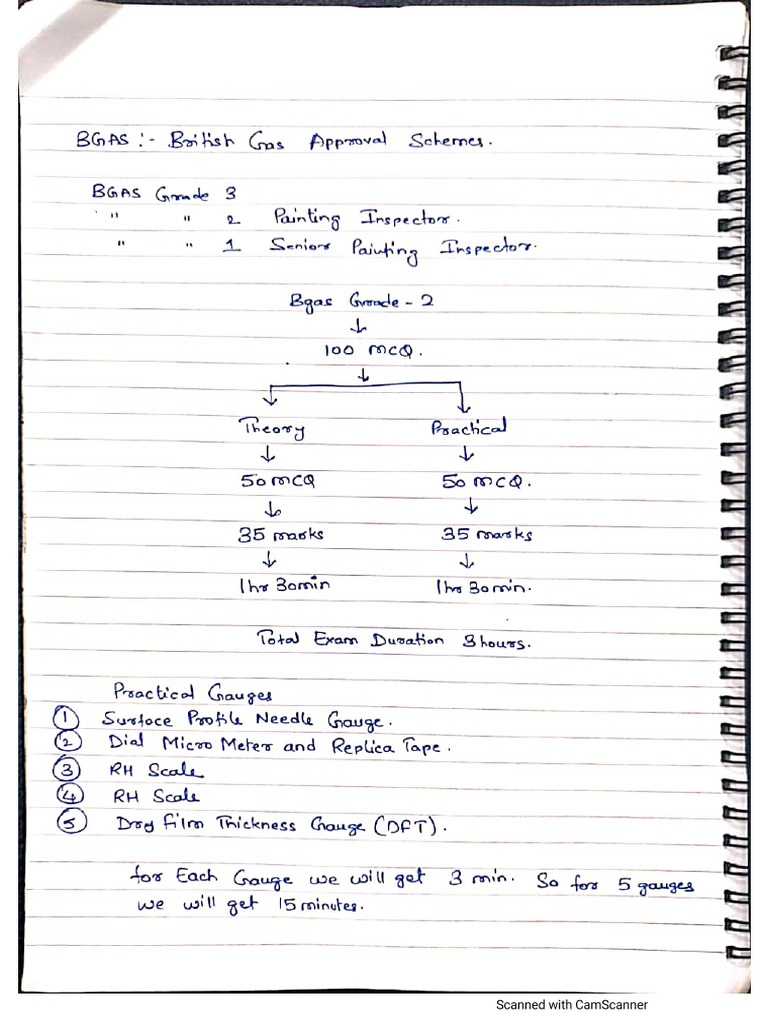 BGAS :- British Gas Approval Schemes.
BGAS Grade 3
" " 2 Painting Inspector.
" " 1 Senior Painting Inspector.
Bgas Grade - 2
↓
100 MCQ.
↓
Theory Practical
↓ ↓
50 MCQ 50 MCQ.
↓ ↓
35 marks 35 marks
↓ ↓
1hr 30min 1hr 30min.
Total Exam Duration 3hours.
Practical Gauges
① Surface Profile Needle Gauge.
② Dial Micro Meter and Replica Tape.
③ RH Scale
④ RH Scale
⑤ Dry Film Thickness Gauge (DFT).
for Each Gauge we will get 3 min. So for 5 gauges
we will get 15 minutes.
Scanned with CamScanner